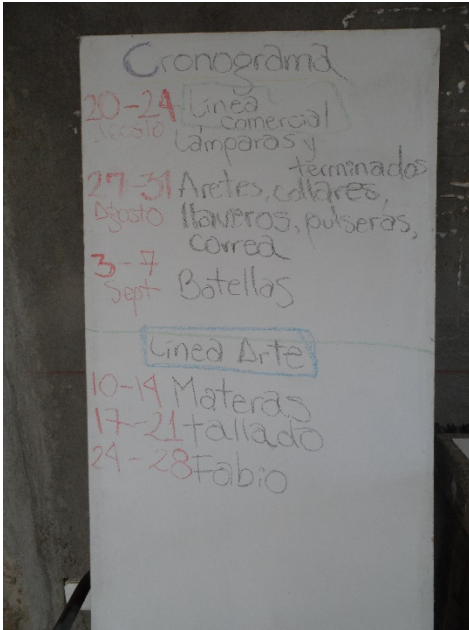 Cronograma
20-24 Línea
Agosto comercial
Lámparas y
terminados
27-31 Aretes, collares,
Agosto llaveros, pulseras,
correa
3-7
Sept Botellas
Línea Arte
10-14 Materas
17-21 tallado
24-28 Fabio